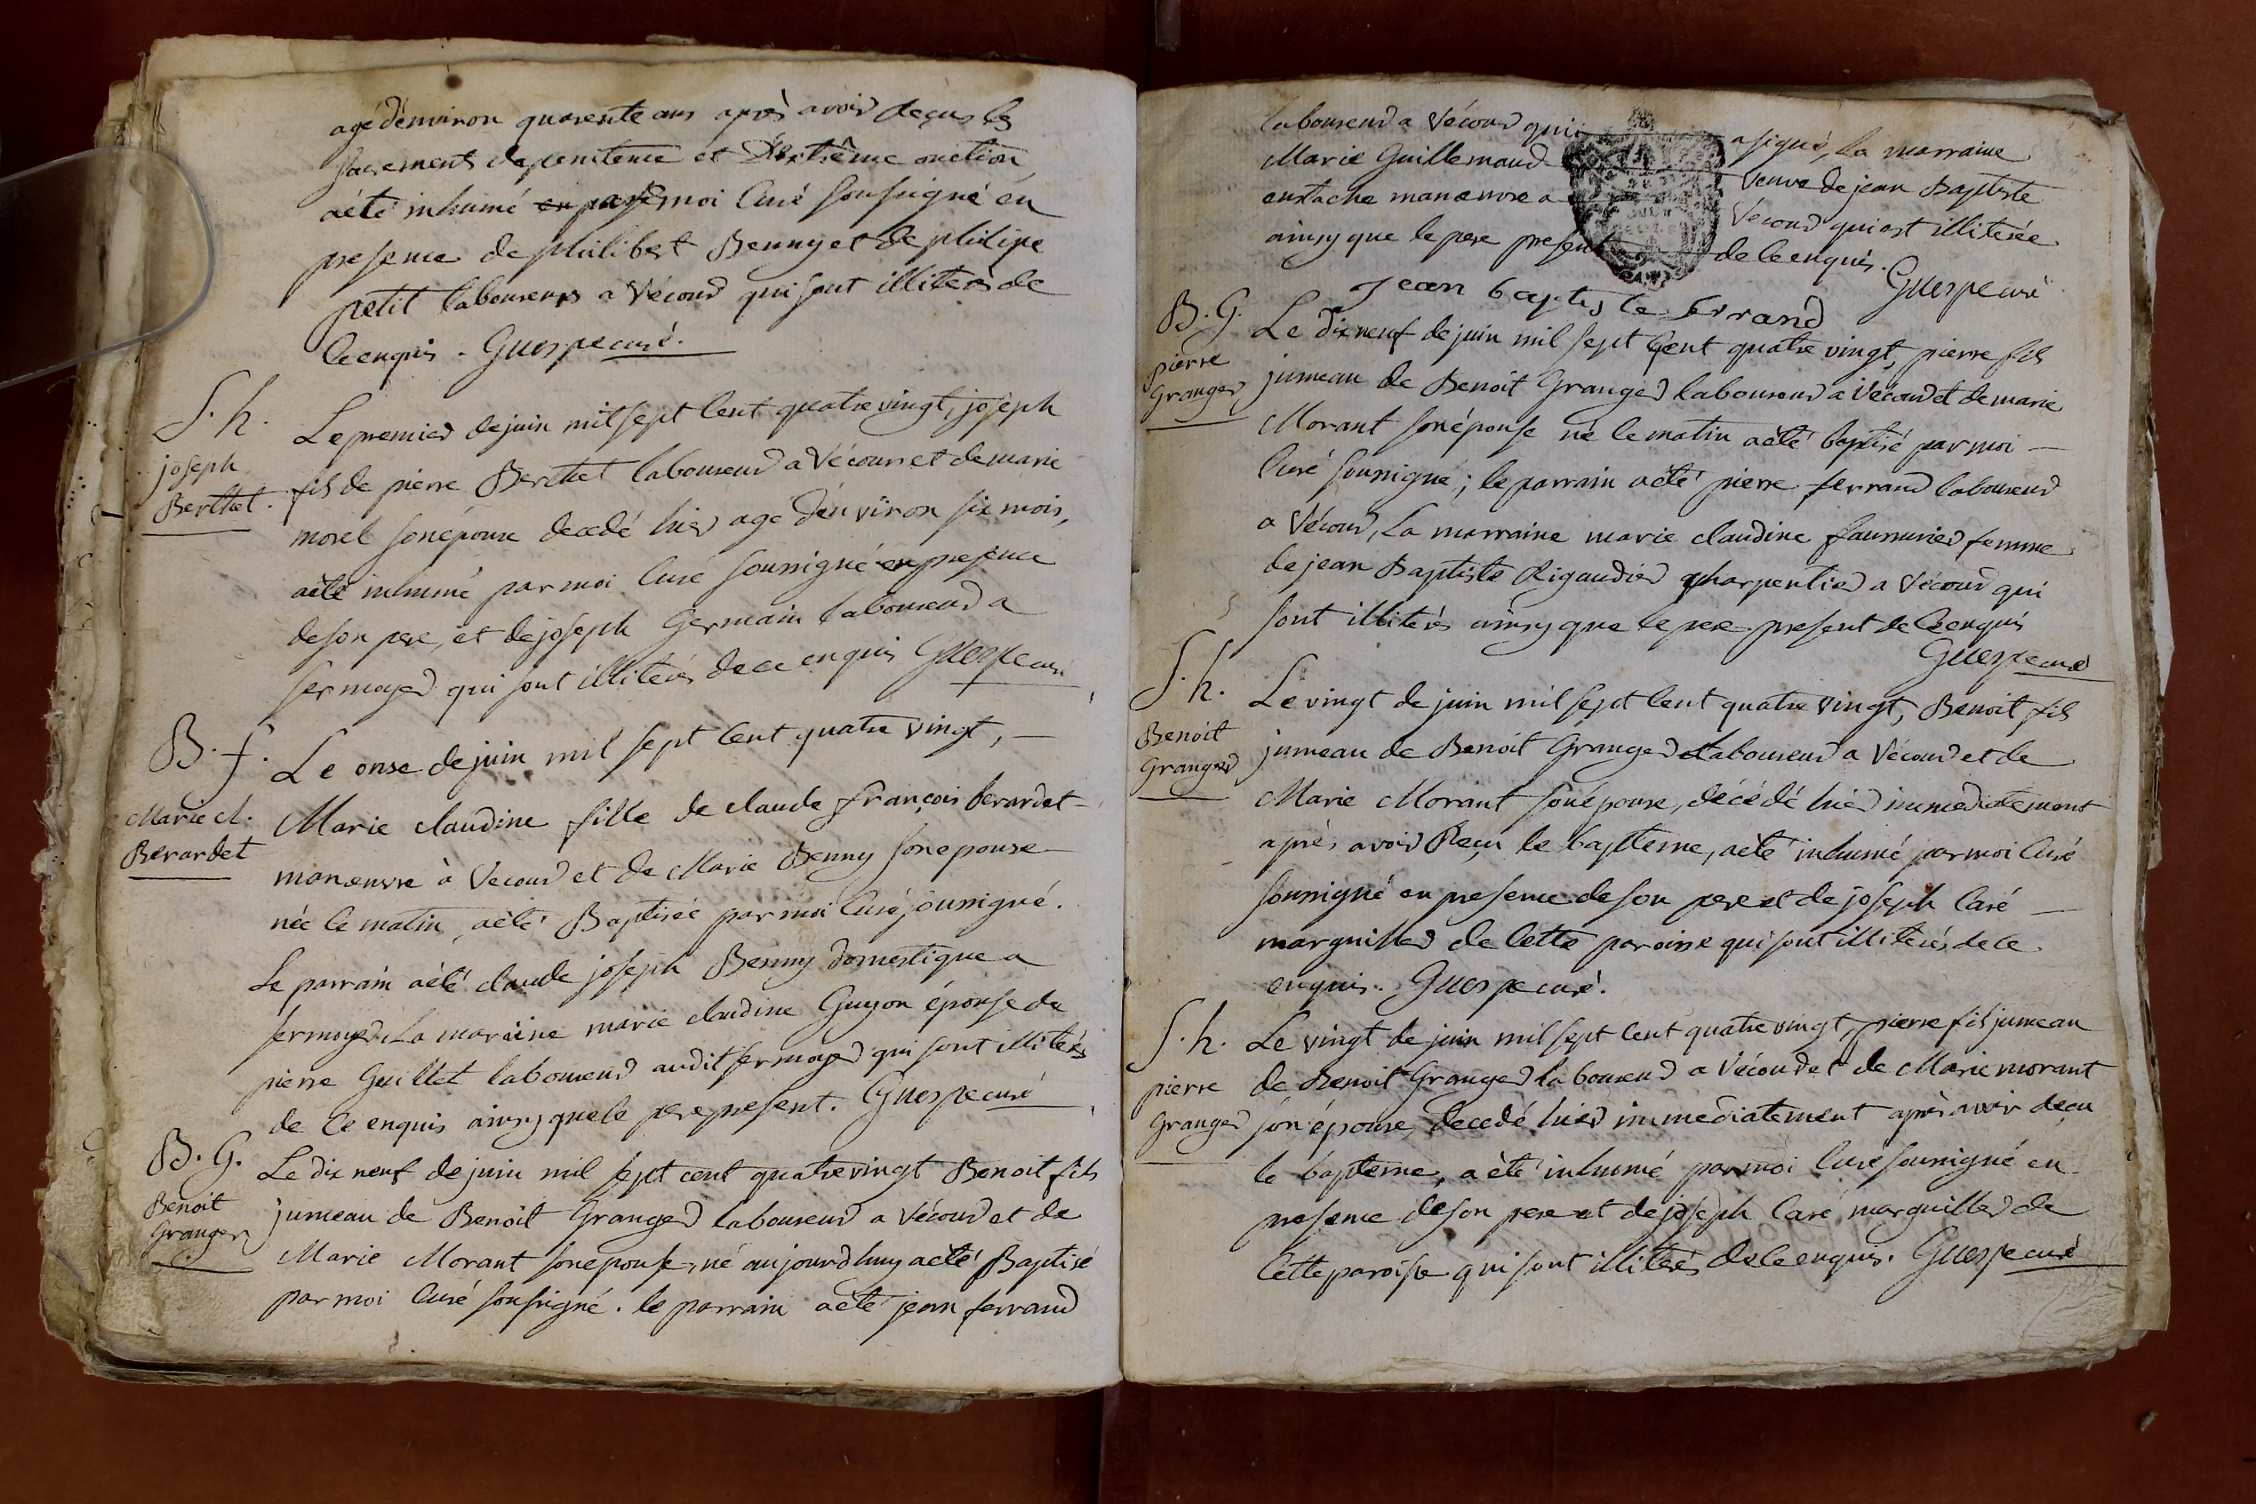 agé d'environ quarente ans après avoir reçus les
sacrements de penitence et d'extrême onction
a été inhumé par moi Curé soussigné en
presence de philibert Benny et de philipe
petit laboureurs a Vécour qui sont illiterés de
ce enquis . Guespe curé .
S. h.
joseph
Berthet .
Le premier de juin mil sept cent quatre vingt, joseph
fils de pierre Berthet laboureur a Vécour et de marie
morel son épouse decedé hier agé d'environ six mois,
a été inhumé par moi Curé soussigné en presence
de son pere, et de joseph Germain laboureur a
sermoyer qui sont illiterés de ce enquis Guespe curé
B. f.
Marie cl.
Berardet
Le onse de juin mil sept cent quatre vingt, —
Marie claudine fille de claude françois berardet
manœuvre à Vecour et de Marie Benny son epouse
née le matin, a été Baptisée par moi Curé soussigné.
Le parrain a été claude joseph Benny domestique a
sermoyer, La maraine marie claudine Guyon épouse de
pierre Guillet laboureur audit sermoyer qui sont illiterés
de ce enquis ainsy que le pere present. Guespe curé
B. G.
Benoit
Granger
Le dix neuf de juin mil sept cent quatre vingt Benoit fils
jumeau de Benoît Granger laboureur a Vécour et de
Marie Morant son epouse, né aujourdhuy a été Baptisé
par moi Curé soussigné . le parrain a été jean ferrand
laboureur a Vécour qui a signé, La marraine
Marie Guillemaud veuve de jean Baptiste
eustache manœuvre a Vecour qui est illiterée
ainsy que le pere present de ce enquis.
Guespe curé
Jean baptiste ferrand
B. G.
pierre
Granger
Le dix neuf de juin mil sept cent quatre vingt, pierre fils
jumeau de Benoit Granger laboureur a Vécour et de marie
Morant son épouse né le matin a été baptisé par moi —
Curé soussigné ; le parrain a été pierre ferrand laboureur
a Vécour, La marraine marie claudine femme
de jean Baptiste Rigaudier charpentier a Vécour qui
sont illiterés ainsy que le pere present de ce enquis
Guespe curé
S. h.
Benoit
Granger
Le vingt de juin mil sept cent quatre vingt, Benoit fils
jumeau de Benoit Granger laboureur a Vécour et de
Marie Morant son épouse, décédé hier immediatement
après avoir Reçu le baptême, a été inhumé par moi Curé
soussigné en presence de son pere et de joseph Caré —
marguiller de cette paroisse qui sont illiterés de ce
enquis . Guespe curé.
S. h.
pierre
Granger
Le vingt de juin mil sept cent quatre vingt, pierre fils jumeau
de Benoit Granger laboureur a Vécour et de Marie morant
son épouse, decedé hier immediatement après avoir reçu
le baptême, a été inhumé par moi Curé soussigné en
presence de son pere et de joseph Caré marguiller de
Cette paroisse qui sont illiterés de ce enquis. Guespe curé